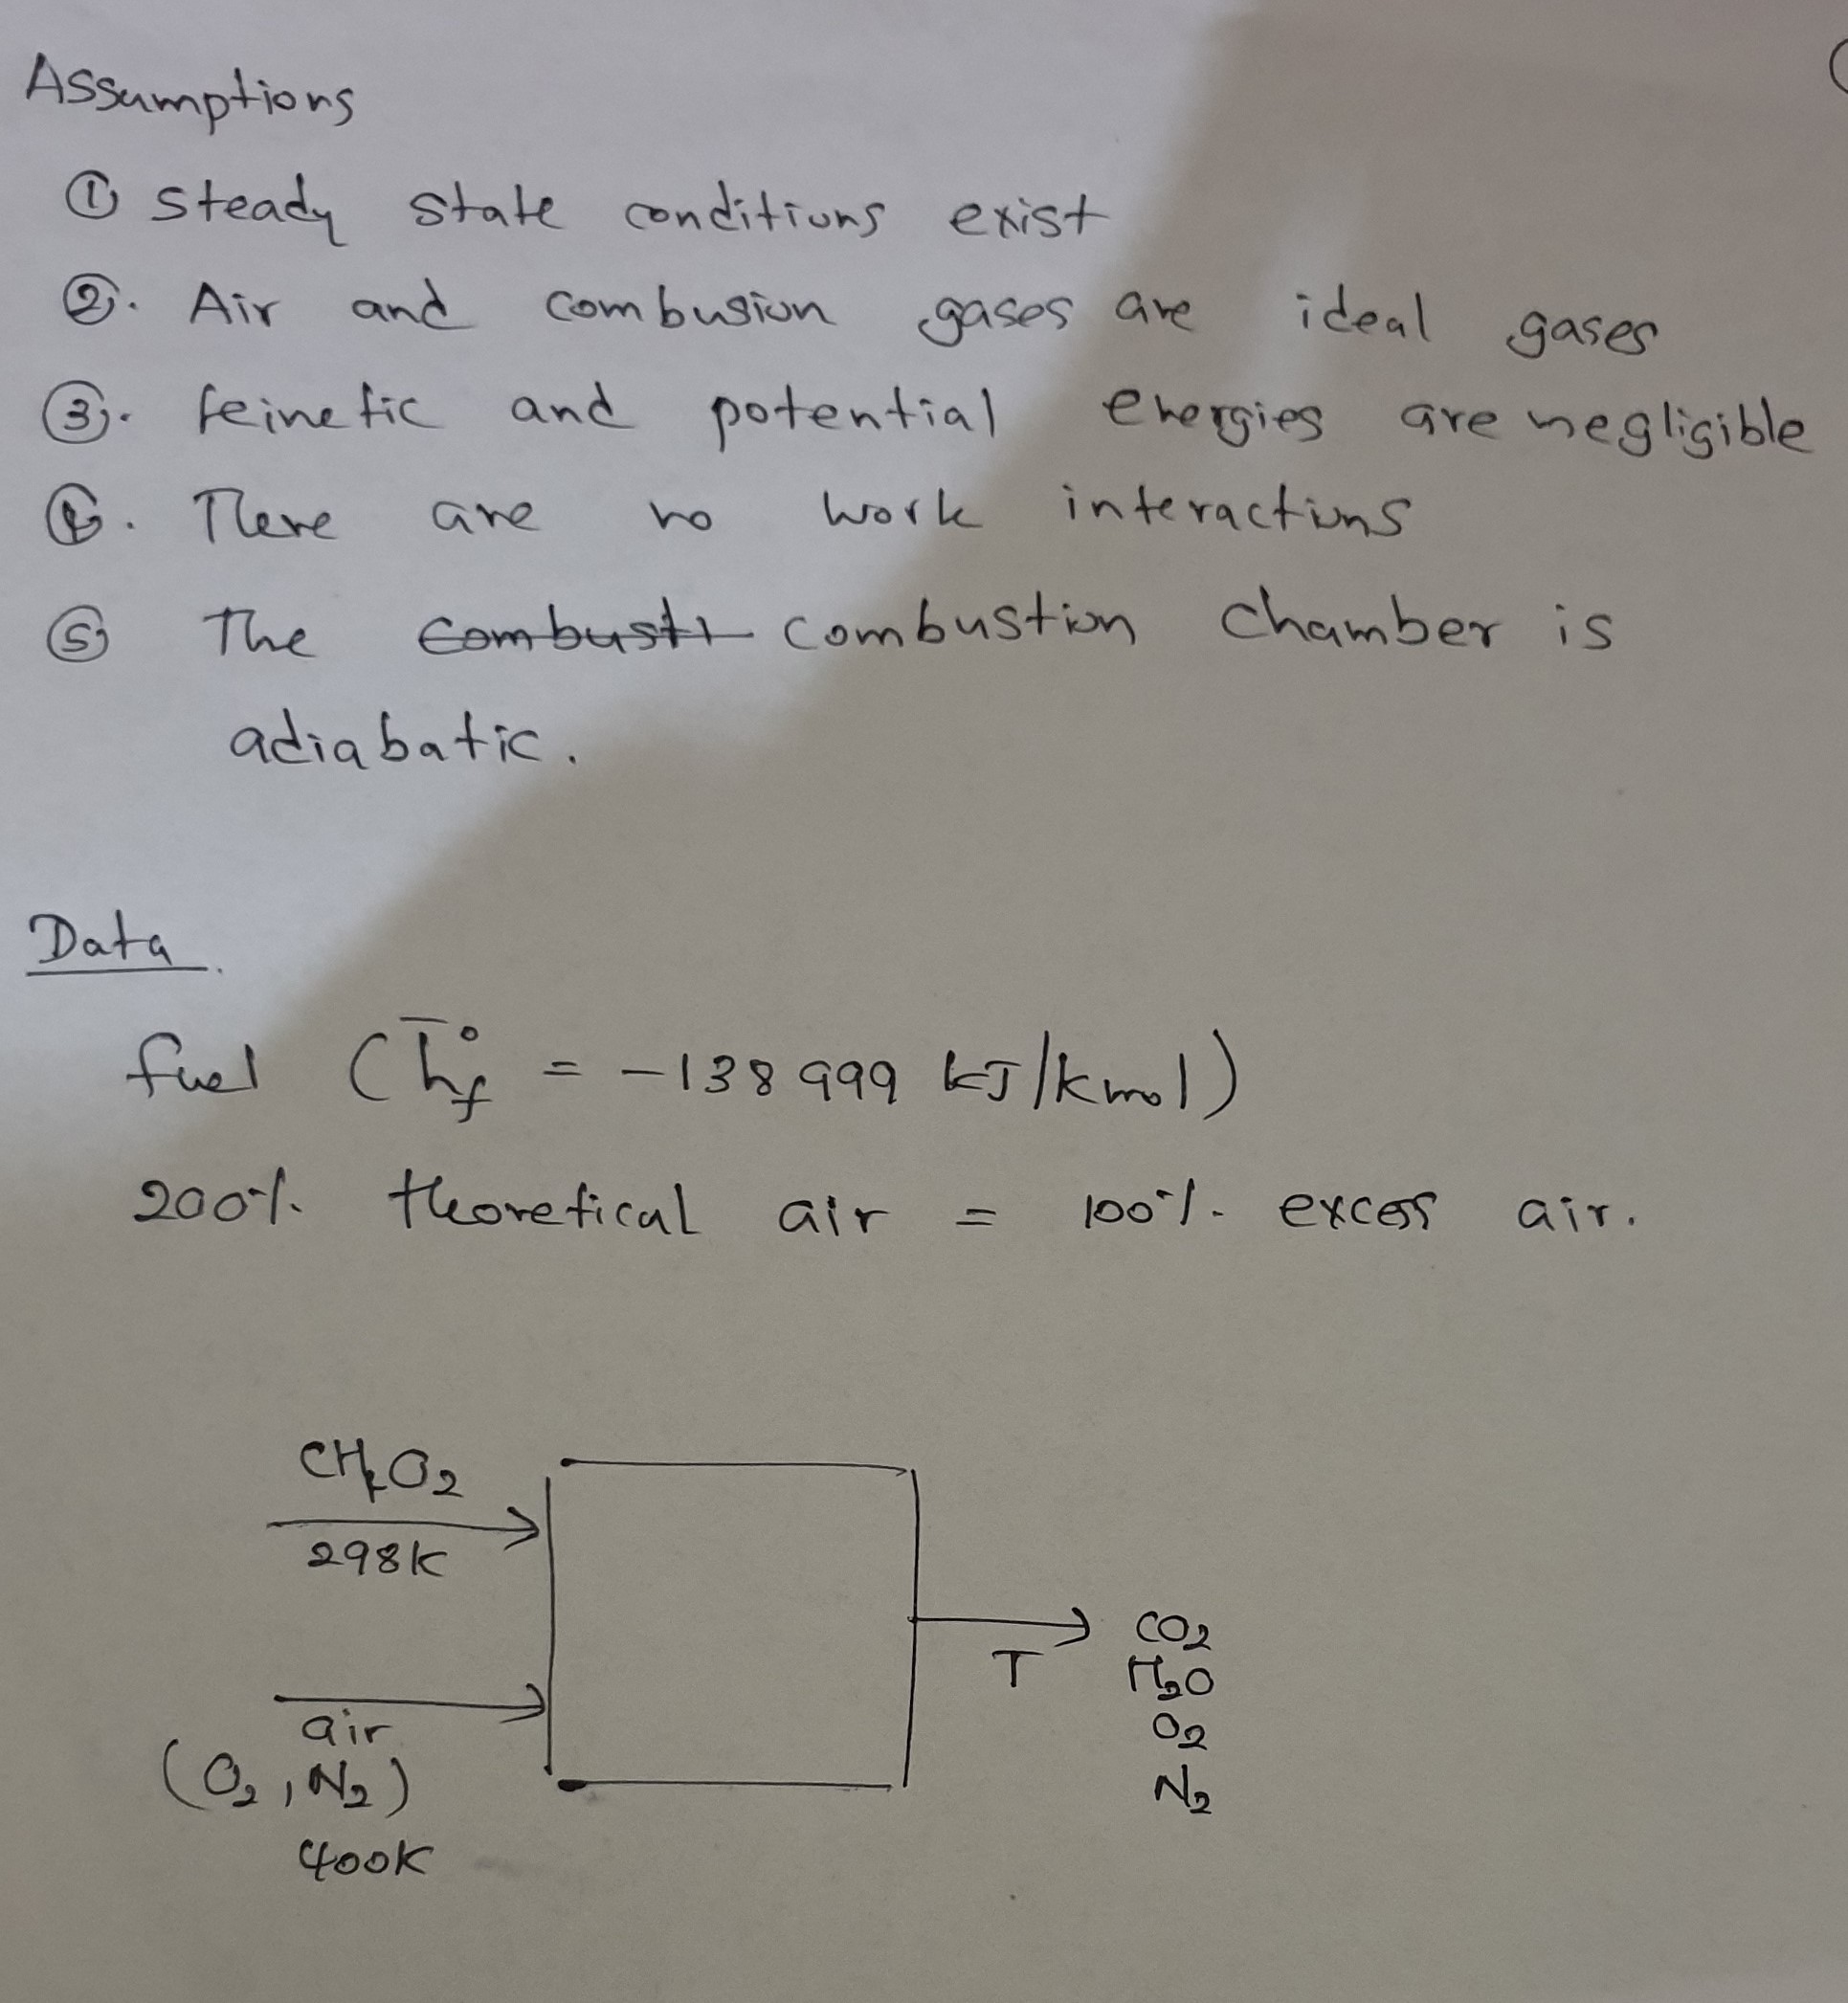 Assumptions
① steady state conditions exist
②. Air and combusion gases are ideal gases
③. keinetic and potential energies are negligible
④. There are no work interactions
⑤ The combusti combustion chamber is
adiabatic.
Data.
fuel (h̄°f = -138 999 kJ/kmol)
200% theoretical air = 100% excess air.
298K
air
(O₂, N₂)
400K
T
CO₂
H₂O
O₂
N₂